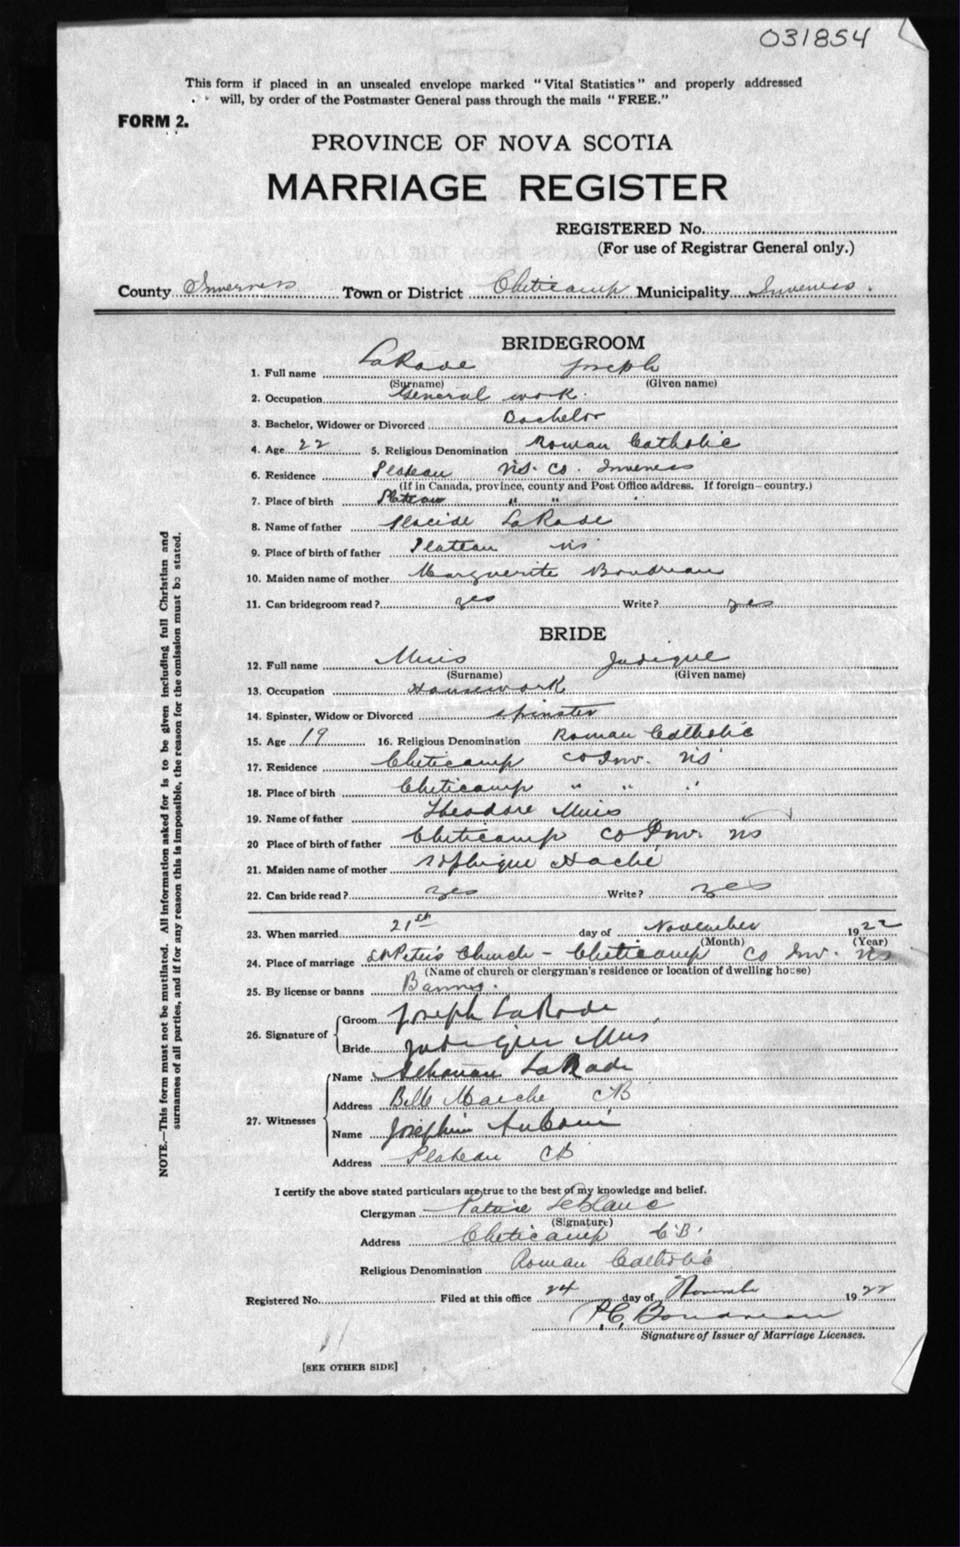 031854
This form if placed in an unsealed envelope marked "Vital Statistics" and properly addressed
will, by order of the Postmaster General pass through the mails "FREE."
FORM 2.
PROVINCE OF NOVA SCOTIA
MARRIAGE REGISTER
REGISTERED No.
(For use of Registrar General only.)
County Inverness Town or District Cheticamp Municipality Inverness.
BRIDEGROOM
1. Full name LaRade Joseph
(Surname) (Given name)
2. Occupation General work.
3. Bachelor, Widower or Divorced Bachelor
4. Age 22 5. Religious Denomination Roman Catholic
6. Residence Plateau NS. Co. Inverness
(If in Canada, province, county and Post Office address. If foreign-country.)
7. Place of birth Plateau " " "
8. Name of father Placide LaRade
9. Place of birth of father Plateau NS
10. Maiden name of mother Marguerite Boudreau
11. Can bridegroom read? yes Write? yes
BRIDE
12. Full name Muis Judique
(Surname) (Given name)
13. Occupation Housework
14. Spinster, Widow or Divorced spinster
15. Age 19 16. Religious Denomination Roman Catholic
17. Residence Cheticamp Co Inv. NS
18. Place of birth Cheticamp " " "
19. Name of father Theodore Muis
20 Place of birth of father Cheticamp Co Inv. NS
21. Maiden name of mother Sophique Haché
22. Can bride read? yes Write? yes
23. When married 21st day of November 1922
(Month) (Year)
24. Place of marriage St Peter's Church - Cheticamp Co Inv. NS
(Name of church or clergyman's residence or location of dwelling house)
25. By license or banns Banns.
26. Signature of Groom Joseph LaRade
Bride Muis
27. Witnesses
Name LaRade
Address Belle Marche CB
Name
Address Plateau CB
I certify the above stated particulars are true to the best of my knowledge and belief.
Clergyman LeBlanc
(Signature)
Address Cheticamp C.B.
Religious Denomination Roman Catholic
Registered No. Filed at this office 24 day of November 1922
P.C. Boudreau
Signature of Issuer of Marriage Licenses.
[SEE OTHER SIDE]
NOTE.—This form must not be mutilated. All information asked for is to be given including full Christian and
surnames of all parties, and if for any reason this is impossible, the reason for the omission must be stated.